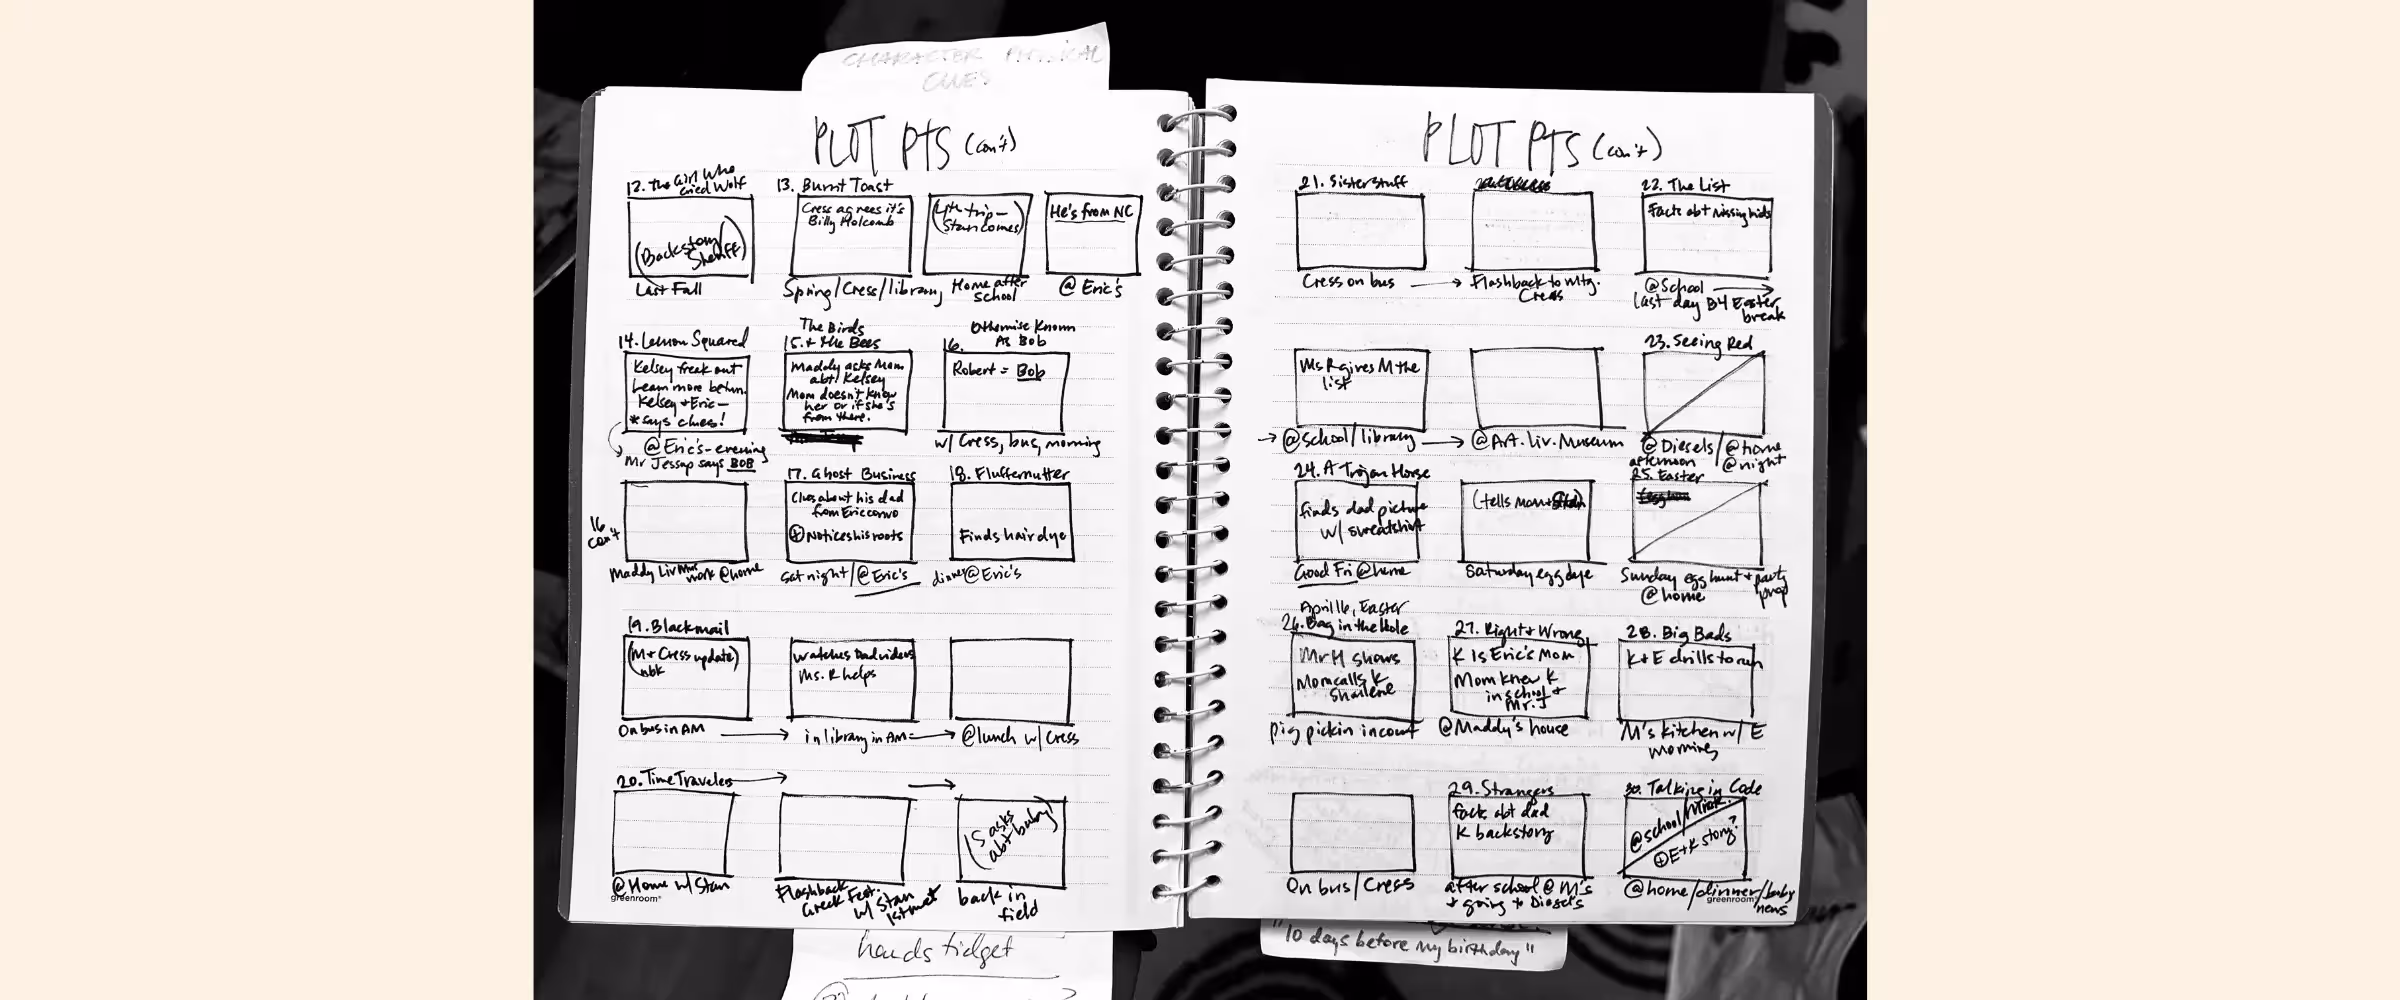 CHARACTER PHYSICAL
CLUES
PLOT PTS (con't)
12. The Girl Who
cried Wolf
(Backstory
Sheriff)
Last Fall
13. Burnt Toast
Cress agrees it's
Billy Holcomb
Spring/Cress/library
(4th trip-
Stan comes)
Home after
school
He's from NC
@ Eric's
14. Lemon Squared
Kelsey freak out
Learn more betwn.
Kelsey + Eric-
*says clues!
@Eric's-evening
Mr Jessup says BOB
The Birds
15. + the Bees
Maddy asks Mom
abt Kelsey
Mom doesn't know
her or if she's
from there.
Otherwise Known
16. As Bob
Robert = Bob
w/ Cress, bus, morning
16
con't
Maddy Liv Mus
work @home
17. Ghost Business
Clues about his dad
from Eric convo
+ Notices his roots
Sat night/@Eric's
18. Fluffernutter
Finds hair dye
dinner @Eric's
19. Blackmail
(M + Cress update)
On bus in AM
Watches Dad videos
Ms. R helps
in library in AM
@lunch w/ Cress
20. Time Travelers
@Home w/ Stan
Flashback
Greek Fest.
w/ Stan
back in
field
(S asks
abt baby)
greenroom®
hands fidget
PLOT PTS (con't)
21. Sister Stuff
Cress on bus
Flashback to Mtg.
Cress
22. The List
Facts abt missing kids
@School
last day B4 Easter
break
Ms R gives M the
list
@School/library
@Art. Liv. Museum
23. Seeing Red
@Diesels/@home
afternoon @night
24. A Trojan Horse
finds dad picture
w/ sweatshirt
Good Fri @home
(tells mom + Stan)
Saturday egg dye
25. Easter
Sunday egg hunt + party
prep
@home
April 16, Easter
26. Bag in the Hole
Mr H shows
Mom calls K
Sharlene
pig pickin in court
27. Right + Wrong
K Is Eric's Mom
Mom knew K
in school +
Mr. J
@Maddy's house
28. Big Bads
K + E drills to run
M's kitchen w/ E
morning
On bus/Cress
29. Strangers
facts abt dad
K backstory
after school @ M's
+ going to Diesel's
30. Talking in Code
@school/
+ E+K story?
@home/dinner/baby
news
greenroom®
"10 days before my birthday"